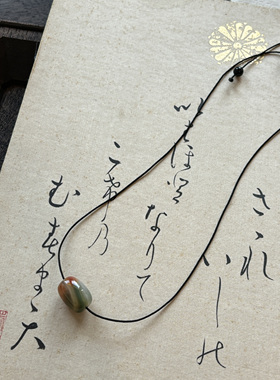 さゝれ
いしの
いはほとなりて
こけの
むすまて